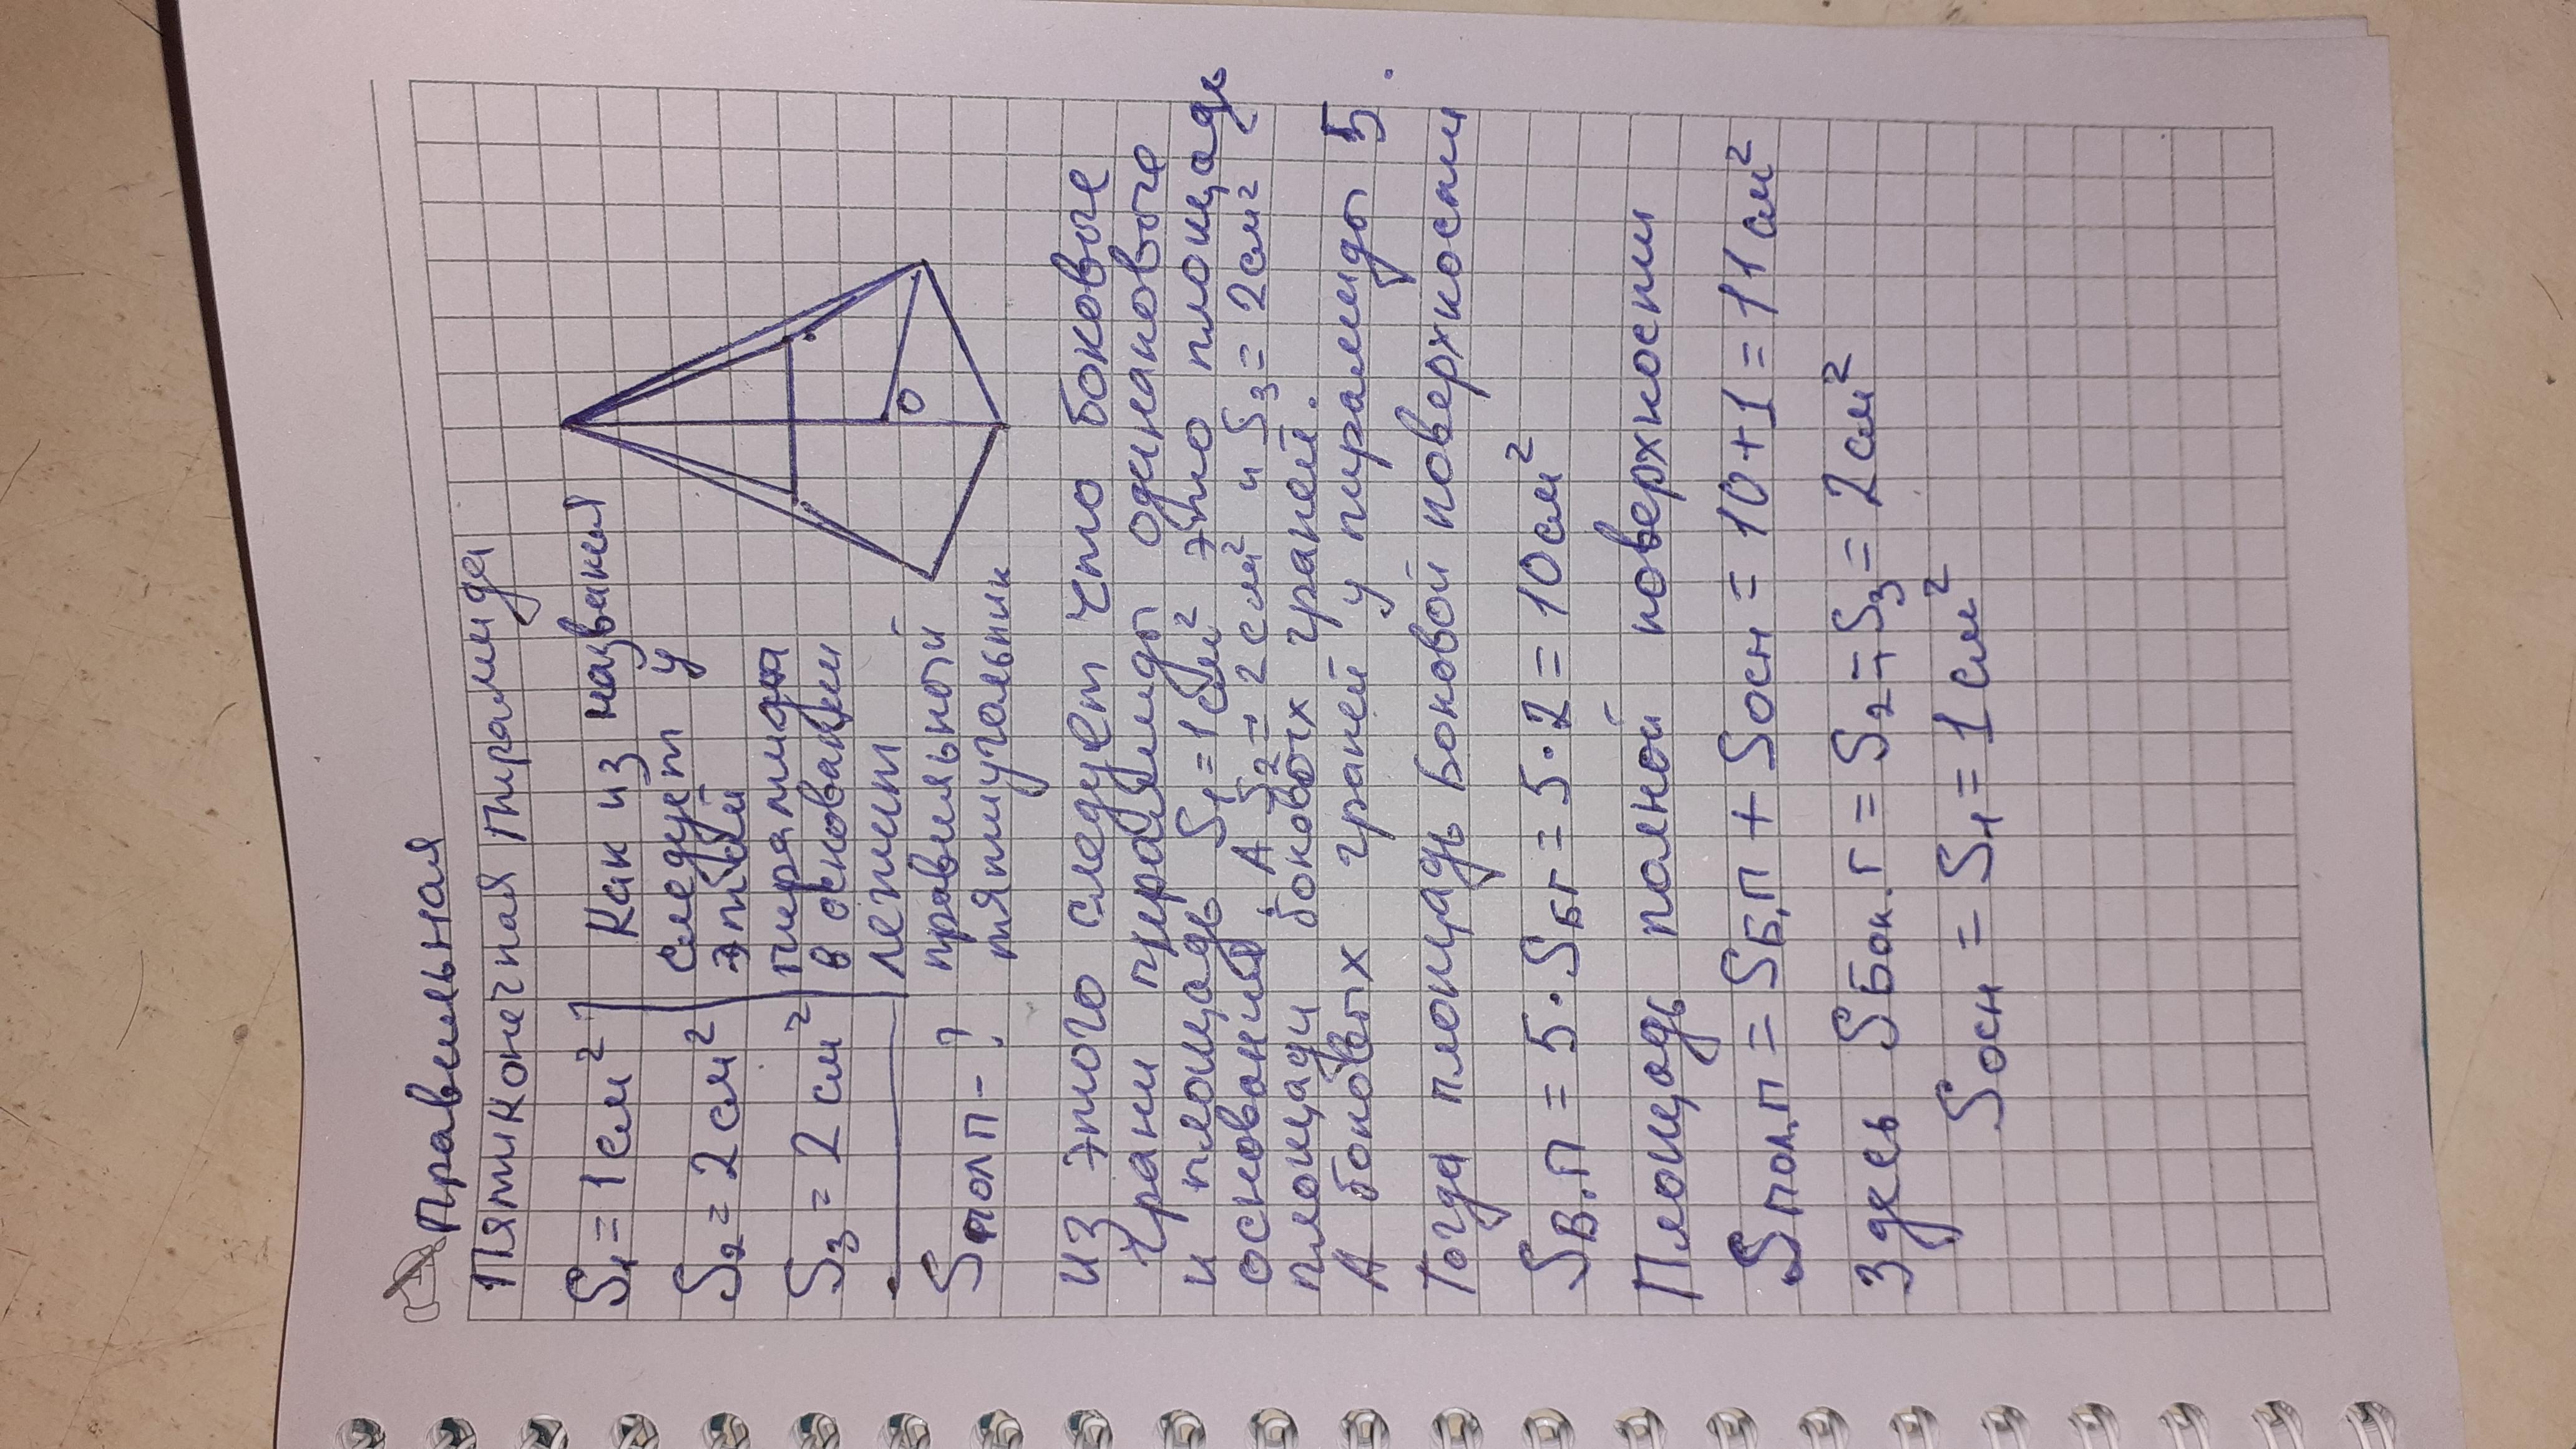 Правильная
Пятиконечная Пирамида
S₁ = 1 см²
S₂ = 2 см²
S₃ = 2 см²
Sполп - ?
Как из названия
следует у
этой
пирамида
в основании
лежит
правильной
пятиугольник
O
из этого следует что боковые
грани пирамиды одинаковые
и площадь S₁ = 1 см² это площадь
основания. А S₂ = 2 см² и S₃ = 2 см²
площади боковых граней.
А боковых граней у пирамиды 5.
Тогда площадь Боковой поверхности
SВ.П = 5 · SБГ = 5 · 2 = 10 см²
Площадь полной поверхности
Sпол.п = SБ.П + Sосн = 10 + 1 = 11 см²
Здесь SБок.г = S₂ = S₃ = 2 см²
Sосн = S₁ = 1 см²